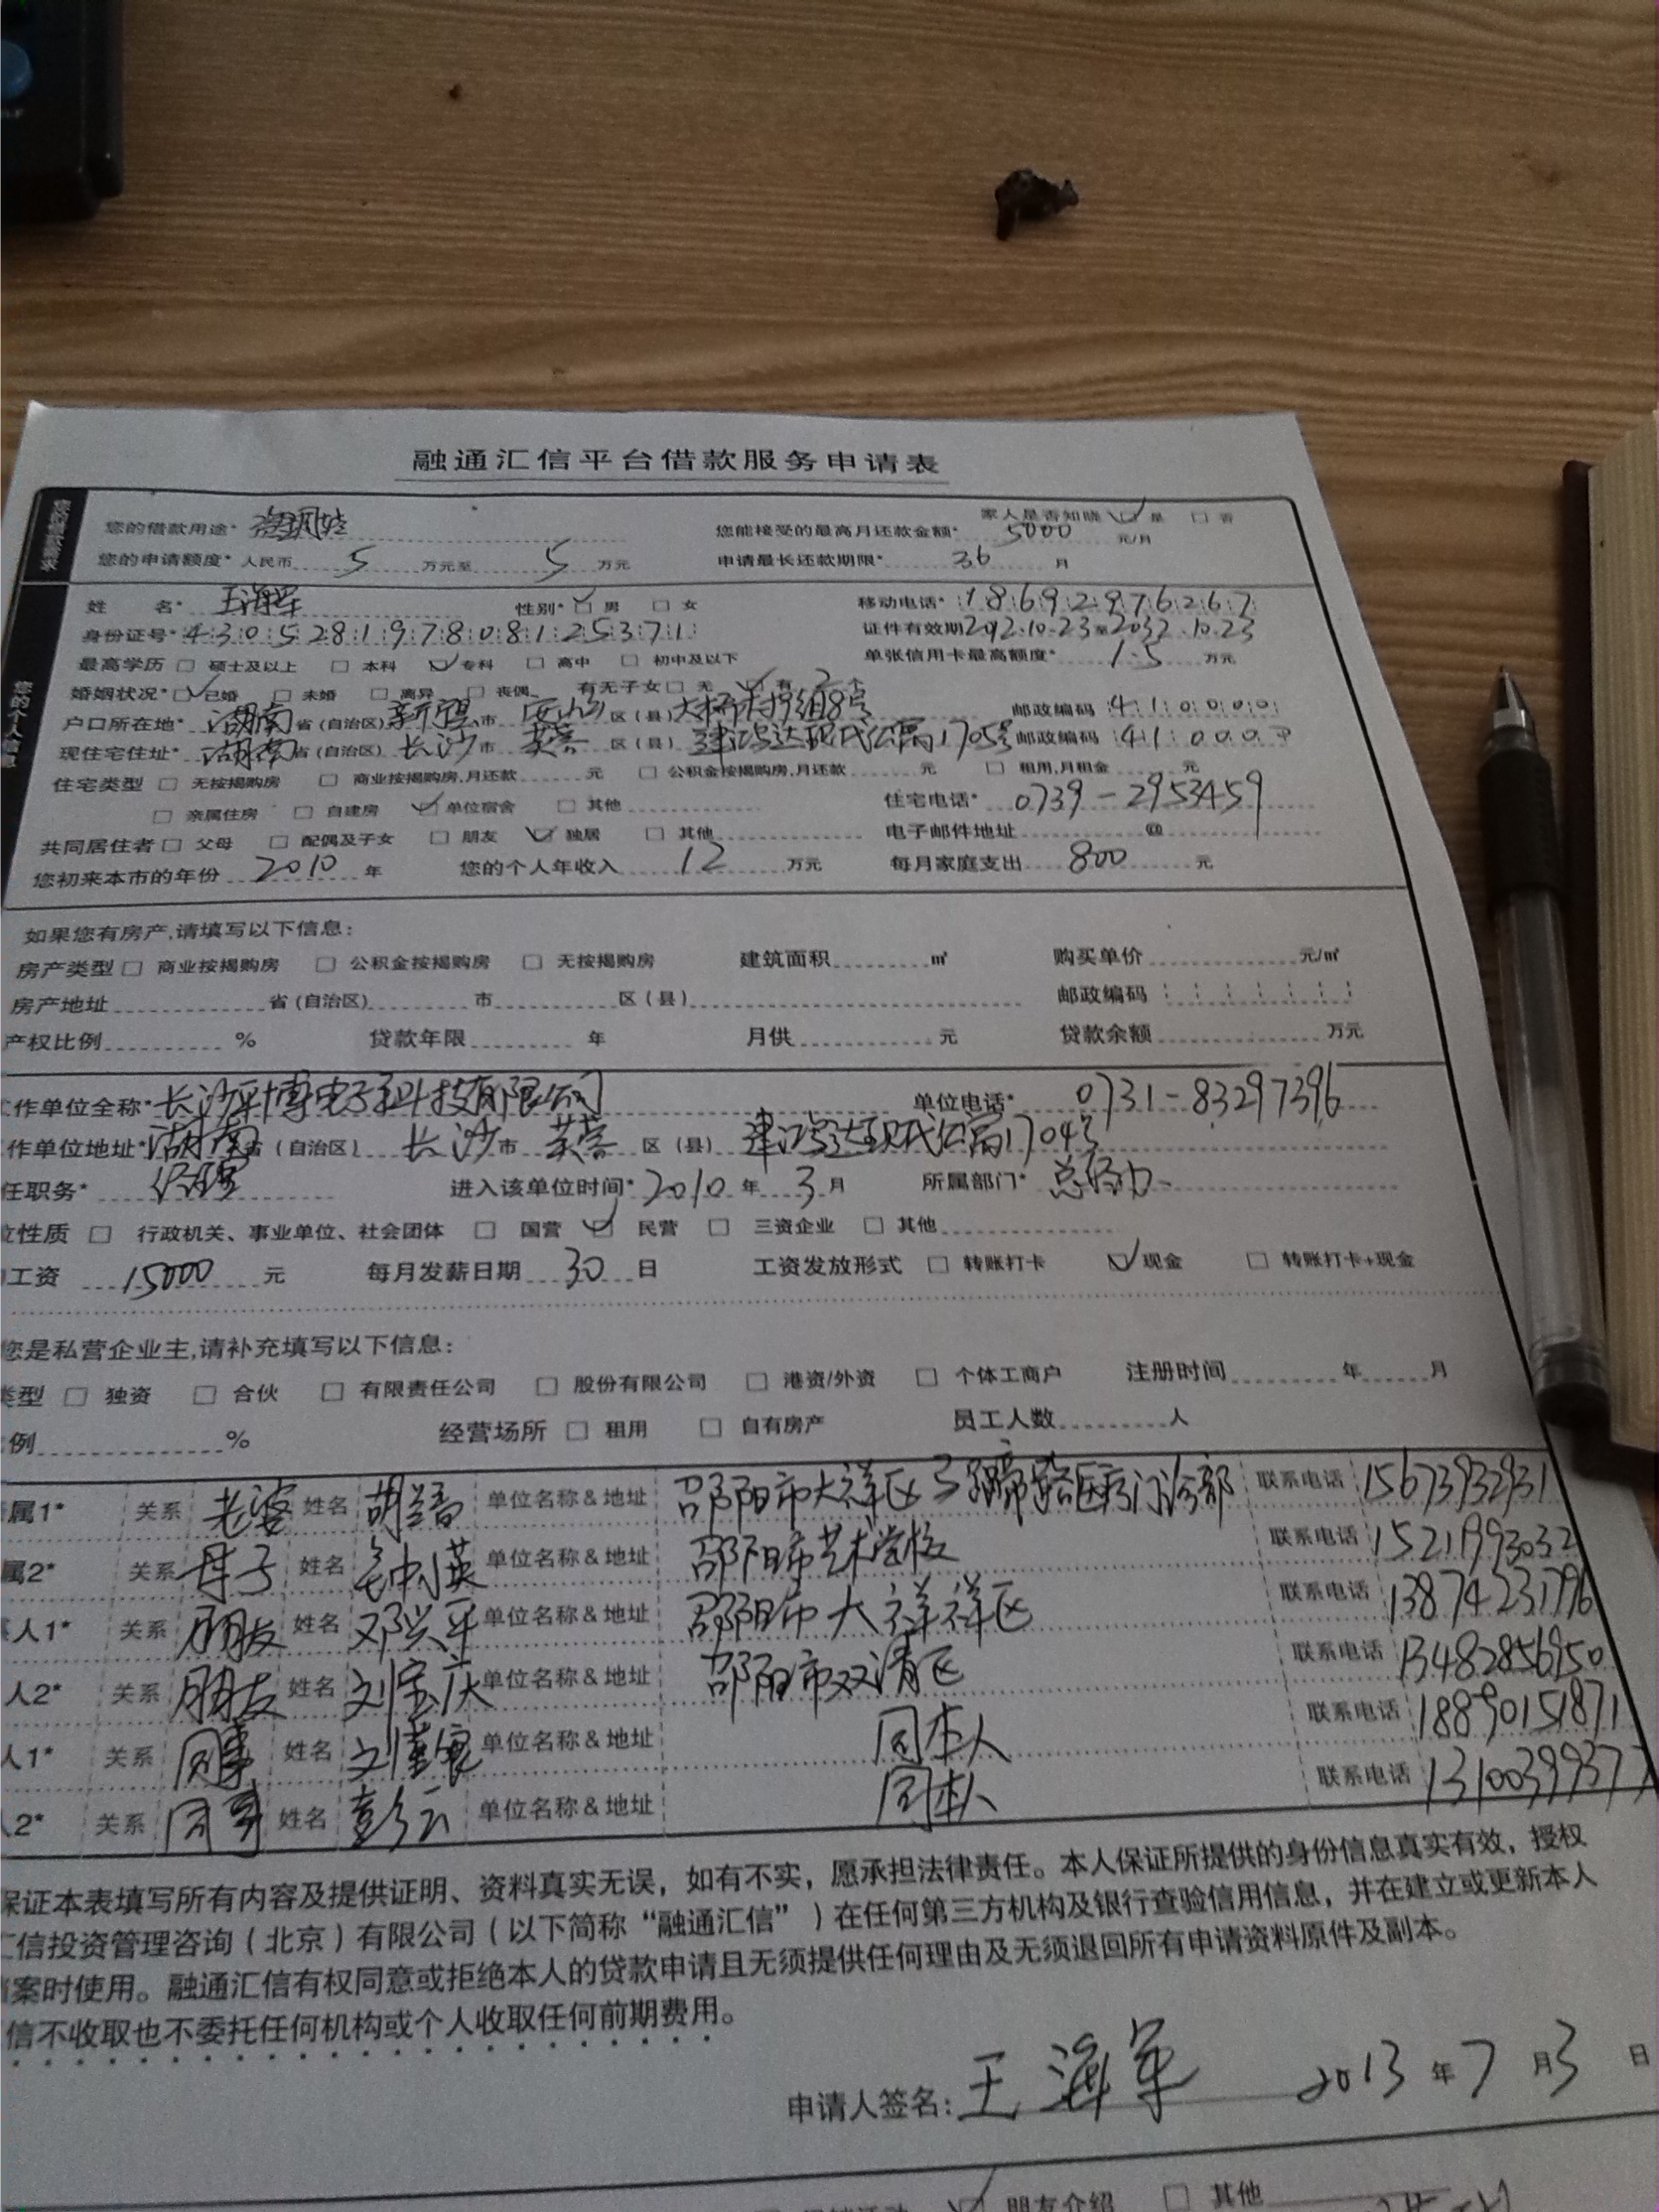 融通汇信平台借款服务申请表
您的借款用途* 家人是否知晓 ☑ 是 □ 否
您能接受的最高月还款金额* 5000 元/月
您的申请额度* 人民币 5 万元至 5 万元 申请最长还款期限* 36 月
您的个人信息
姓 名* 王海军 性别* ☑ 男 □ 女 移动电话* 18692976267
身份证号* 430528197808125371 证件有效期 2012.10.23至2032.10.23
最高学历 □ 硕士及以上 □ 本科 ☑ 专科 □ 高中 □ 初中及以下 单张信用卡最高额度* 1.5 万元
婚姻状况* ☑ 已婚 □ 未婚 □ 离异 □ 丧偶 有无子女 □ 无 ☑ 有 2 个
户口所在地* 湖南 省(自治区) 市 区(县) 邮政编码 410000
现住宅住址* 湖南 省(自治区) 长沙 市 芙蓉 区(县) 建鸿达现代公寓1705号 邮政编码 410000
住宅类型 □ 无按揭购房 □ 商业按揭购房,月还款 元 □ 公积金按揭购房,月还款 元 □ 租用,月租金 元
□ 亲属住房 □ 自建房 ☑ 单位宿舍 □ 其他 住宅电话* 0739-2953459
共同居住者 □ 父母 □ 配偶及子女 □ 朋友 ☑ 独居 □ 其他 电子邮件地址 @
您初来本市的年份 2010 年 您的个人年收入 12 万元 每月家庭支出 800 元
如果您有房产,请填写以下信息:
房产类型 □ 商业按揭购房 □ 公积金按揭购房 □ 无按揭购房 建筑面积 ㎡ 购买单价 元/㎡
房产地址 省(自治区) 市 区(县) 邮政编码
产权比例 % 贷款年限 年 月供 元 贷款余额 万元
作单位全称* 长沙 博电子科技有限公司 单位电话* 0731-83297396
作单位地址* 湖南 省(自治区) 长沙 市 芙蓉 区(县) 建鸿达现代公寓1704号
任职务* 经理 进入该单位时间* 2010 年 3 月 所属部门* 总经办
性质 □ 行政机关、事业单位、社会团体 □ 国营 ☑ 民营 □ 三资企业 □ 其他
工资 15000 元 每月发薪日期 30 日 工资发放形式 □ 转账打卡 ☑ 现金 □ 转账打卡+现金
您是私营企业主,请补充填写以下信息:
类型 □ 独资 □ 合伙 □ 有限责任公司 □ 股份有限公司 □ 港资/外资 □ 个体工商户 注册时间 年 月
例 % 经营场所 □ 租用 □ 自有房产 员工人数 人
属1* 关系 老婆 姓名 单位名称&地址 邵阳市大祥区 医疗门诊部 联系电话 15673932931
属2* 关系 姓名 单位名称&地址 邵阳市艺术学校 联系电话 15211993032
人1* 关系 朋友 姓名 邓兴平 单位名称&地址 邵阳市大祥祥区 联系电话 13874231796
人2* 关系 朋友 姓名 刘宝庆 单位名称&地址 邵阳市双清区 联系电话 13482856950
人1* 关系 同事 姓名 单位名称&地址 同本人 联系电话 18890151871
2* 关系 同事 姓名 彭云 单位名称&地址 同本人 联系电话 13100399377
保证本表填写所有内容及提供证明、资料真实无误，如有不实，愿承担法律责任。本人保证所提供的身份信息真实有效，授权
信投资管理咨询（北京）有限公司（以下简称“融通汇信”）在任何第三方机构及银行查验信用信息，并在建立或更新本人
案时使用。融通汇信有权同意或拒绝本人的贷款申请且无须提供任何理由及无须退回所有申请资料原件及副本。
信不收取也不委托任何机构或个人收取任何前期费用。
申请人签名: 王海军 2013 年 7 月 3 日
☑ 朋友介绍 □ 其他